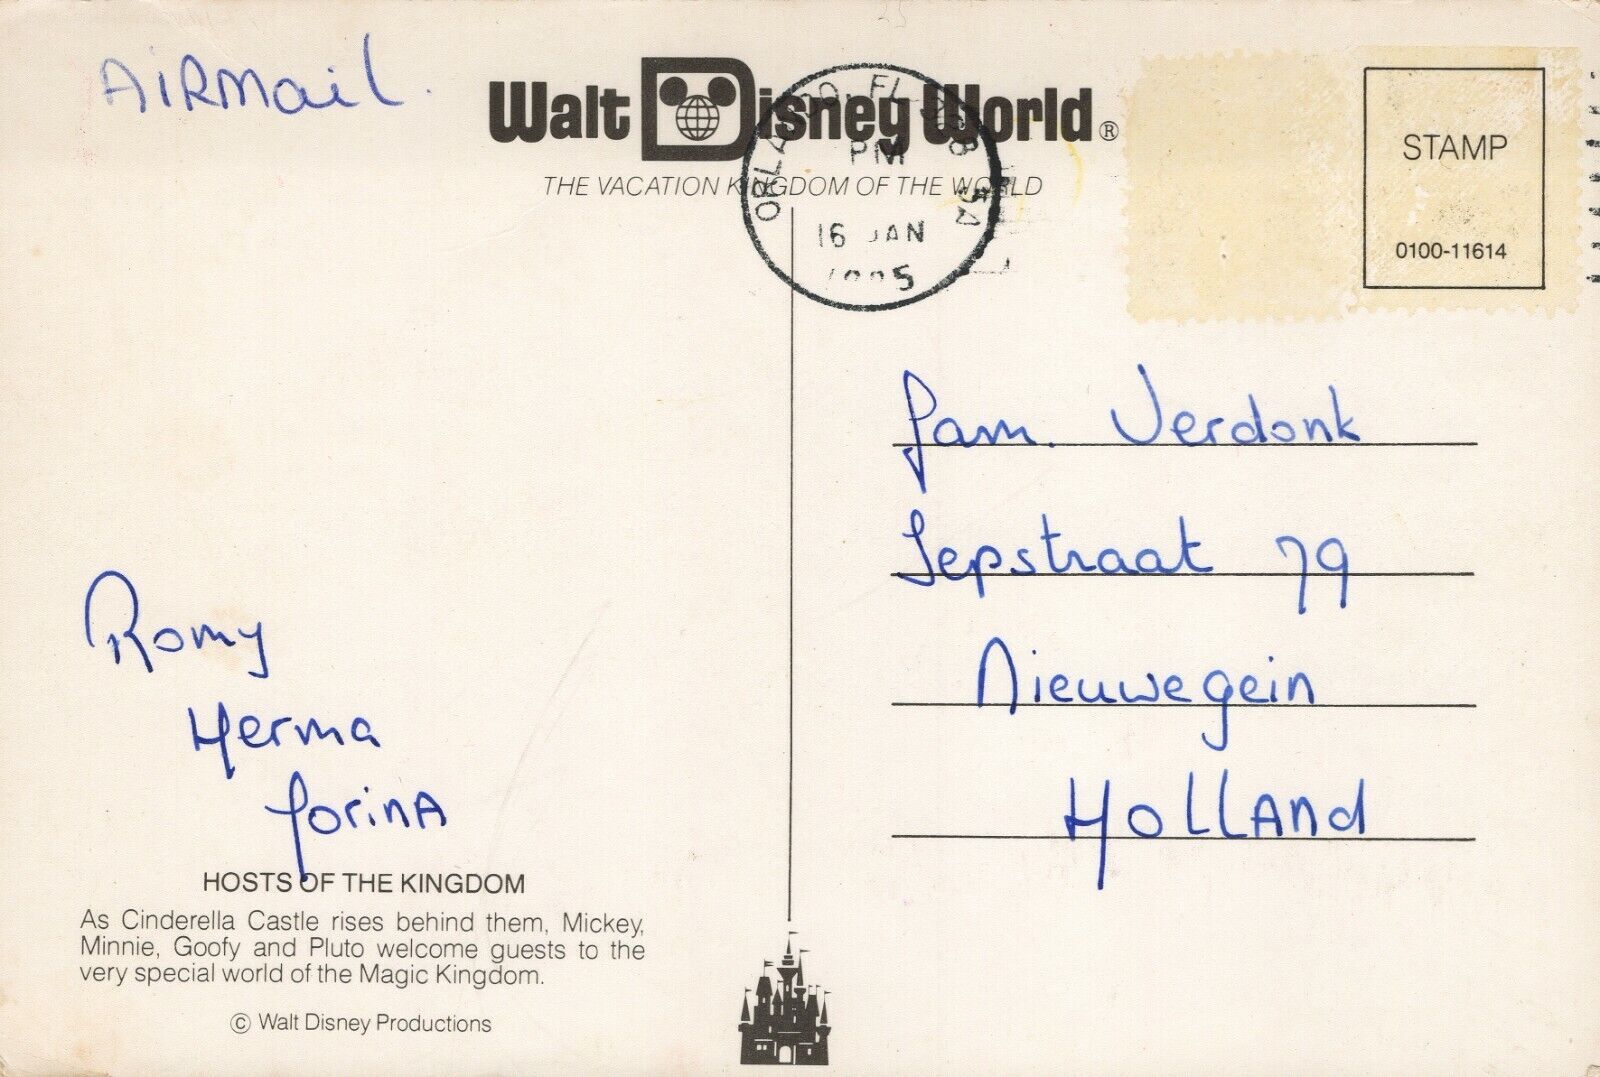 AIRMail.
Walt Disney World®
THE VACATION KINGDOM OF THE WORLD
ORLANDO, FL 328
PM
16 JAN
STAMP
0100-11614
fam. Verdonk
Jepstraat 79
Nieuwegein
HOLLAnd
Romy
Herma
JorinA
HOSTS OF THE KINGDOM
As Cinderella Castle rises behind them, Mickey,
Minnie, Goofy and Pluto welcome guests to the
very special world of the Magic Kingdom.
© Walt Disney Productions